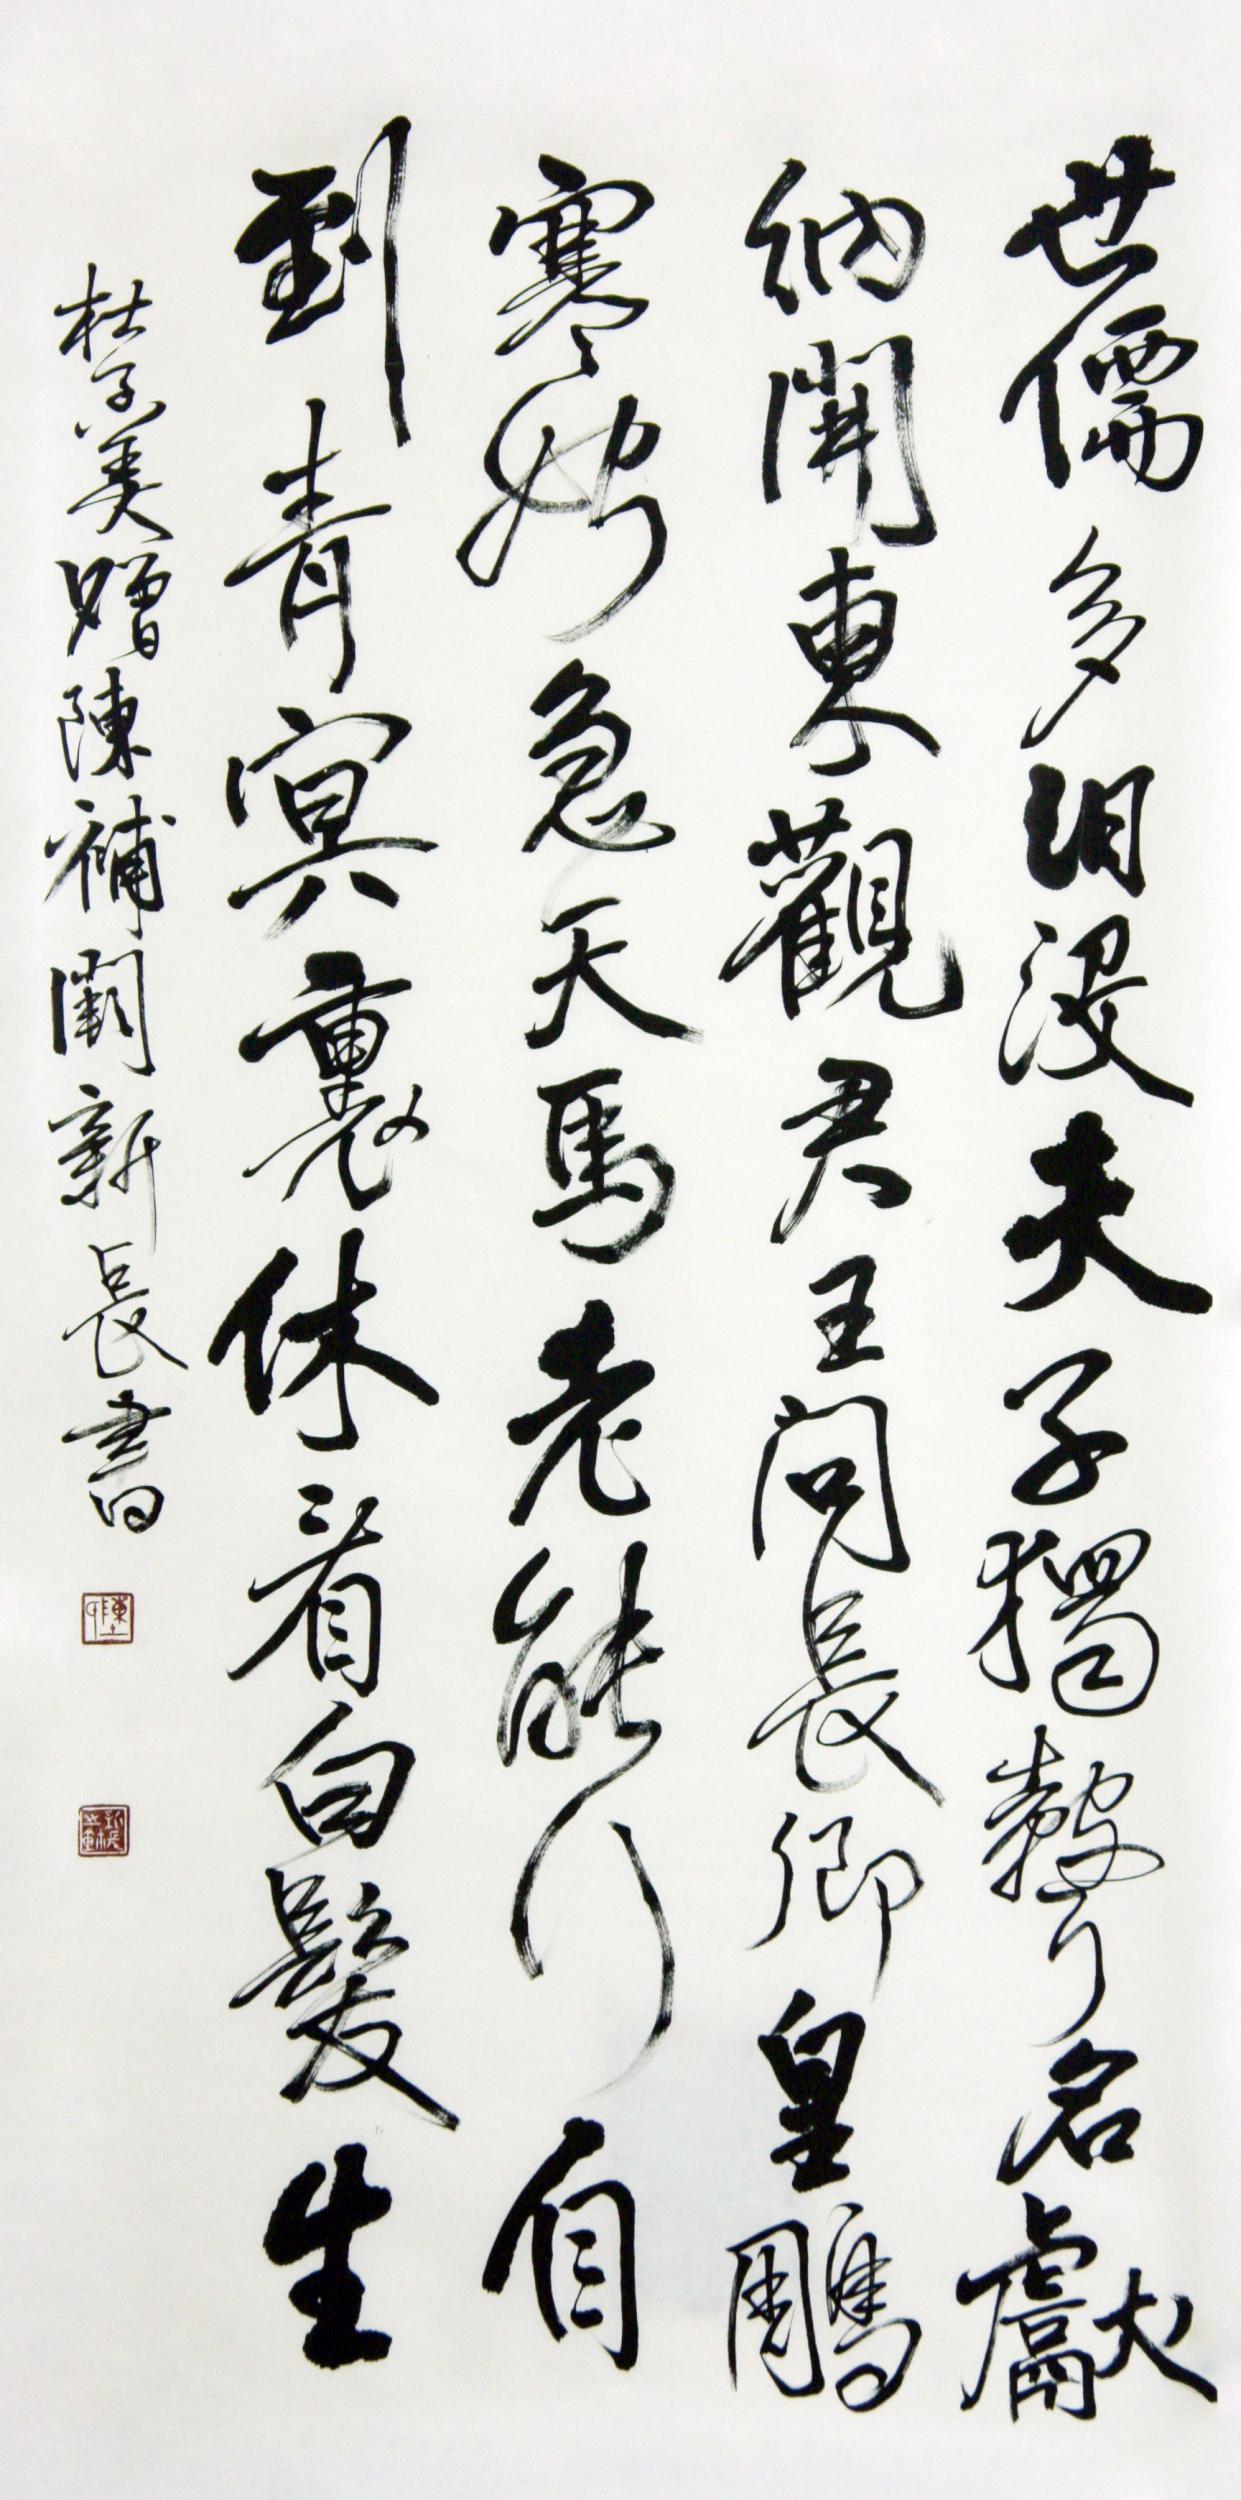 世儒多汩没夫子獨聲名獻
納開東觀君王問長卿皇鵰
寒始急天馬老能行自
到青冥裏休看白髮生
杜子美贈陳補闕新長書